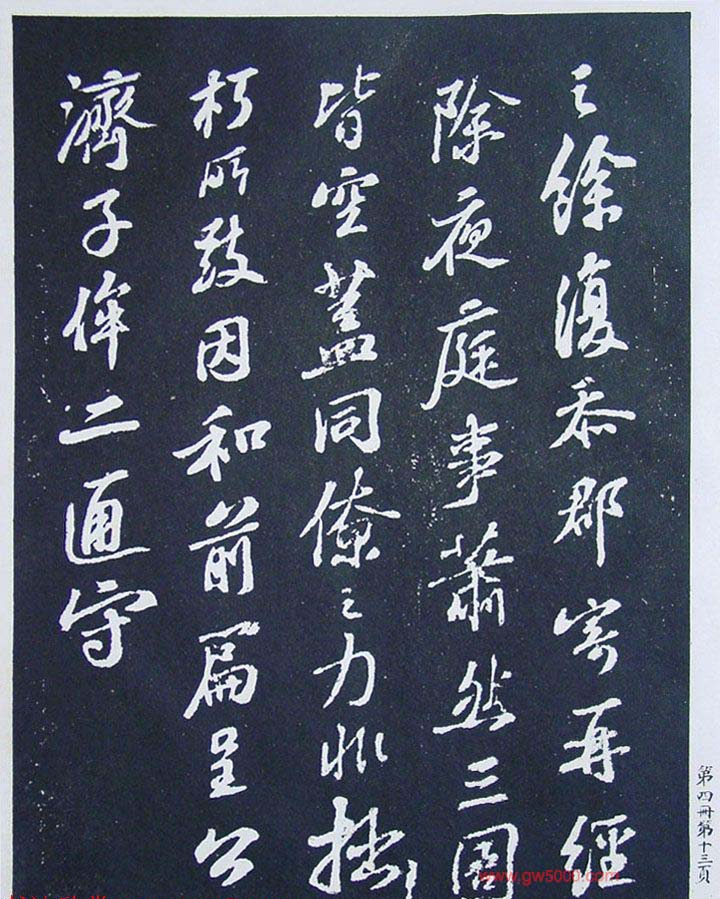 之餘復忝郡寄再經
除夜庭事蕭然三圄
皆空蓋同僚之力非拙
朽所致因和前篇呈公
濟子侔二通守
第四冊第十三頁
www.gw5000.com